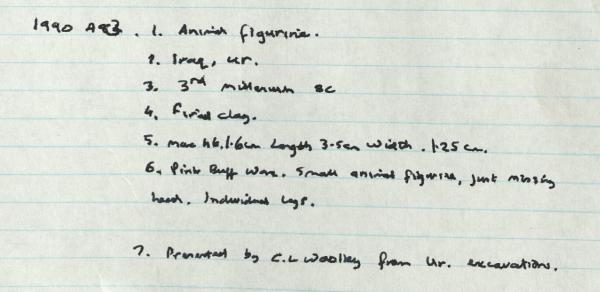 1990 A93. 1. Animal figurine.
2. Iraq, Ur.
3. 3rd millenium BC
4. Fired clay.
5. max ht. 1.6cm Length 3.5cm Width. 1.25 cm.
6. Pink Buff Ware. Small animal figurine, just missing
head. Individual legs.
7. Presented by C.L Woolley from Ur. excavations.